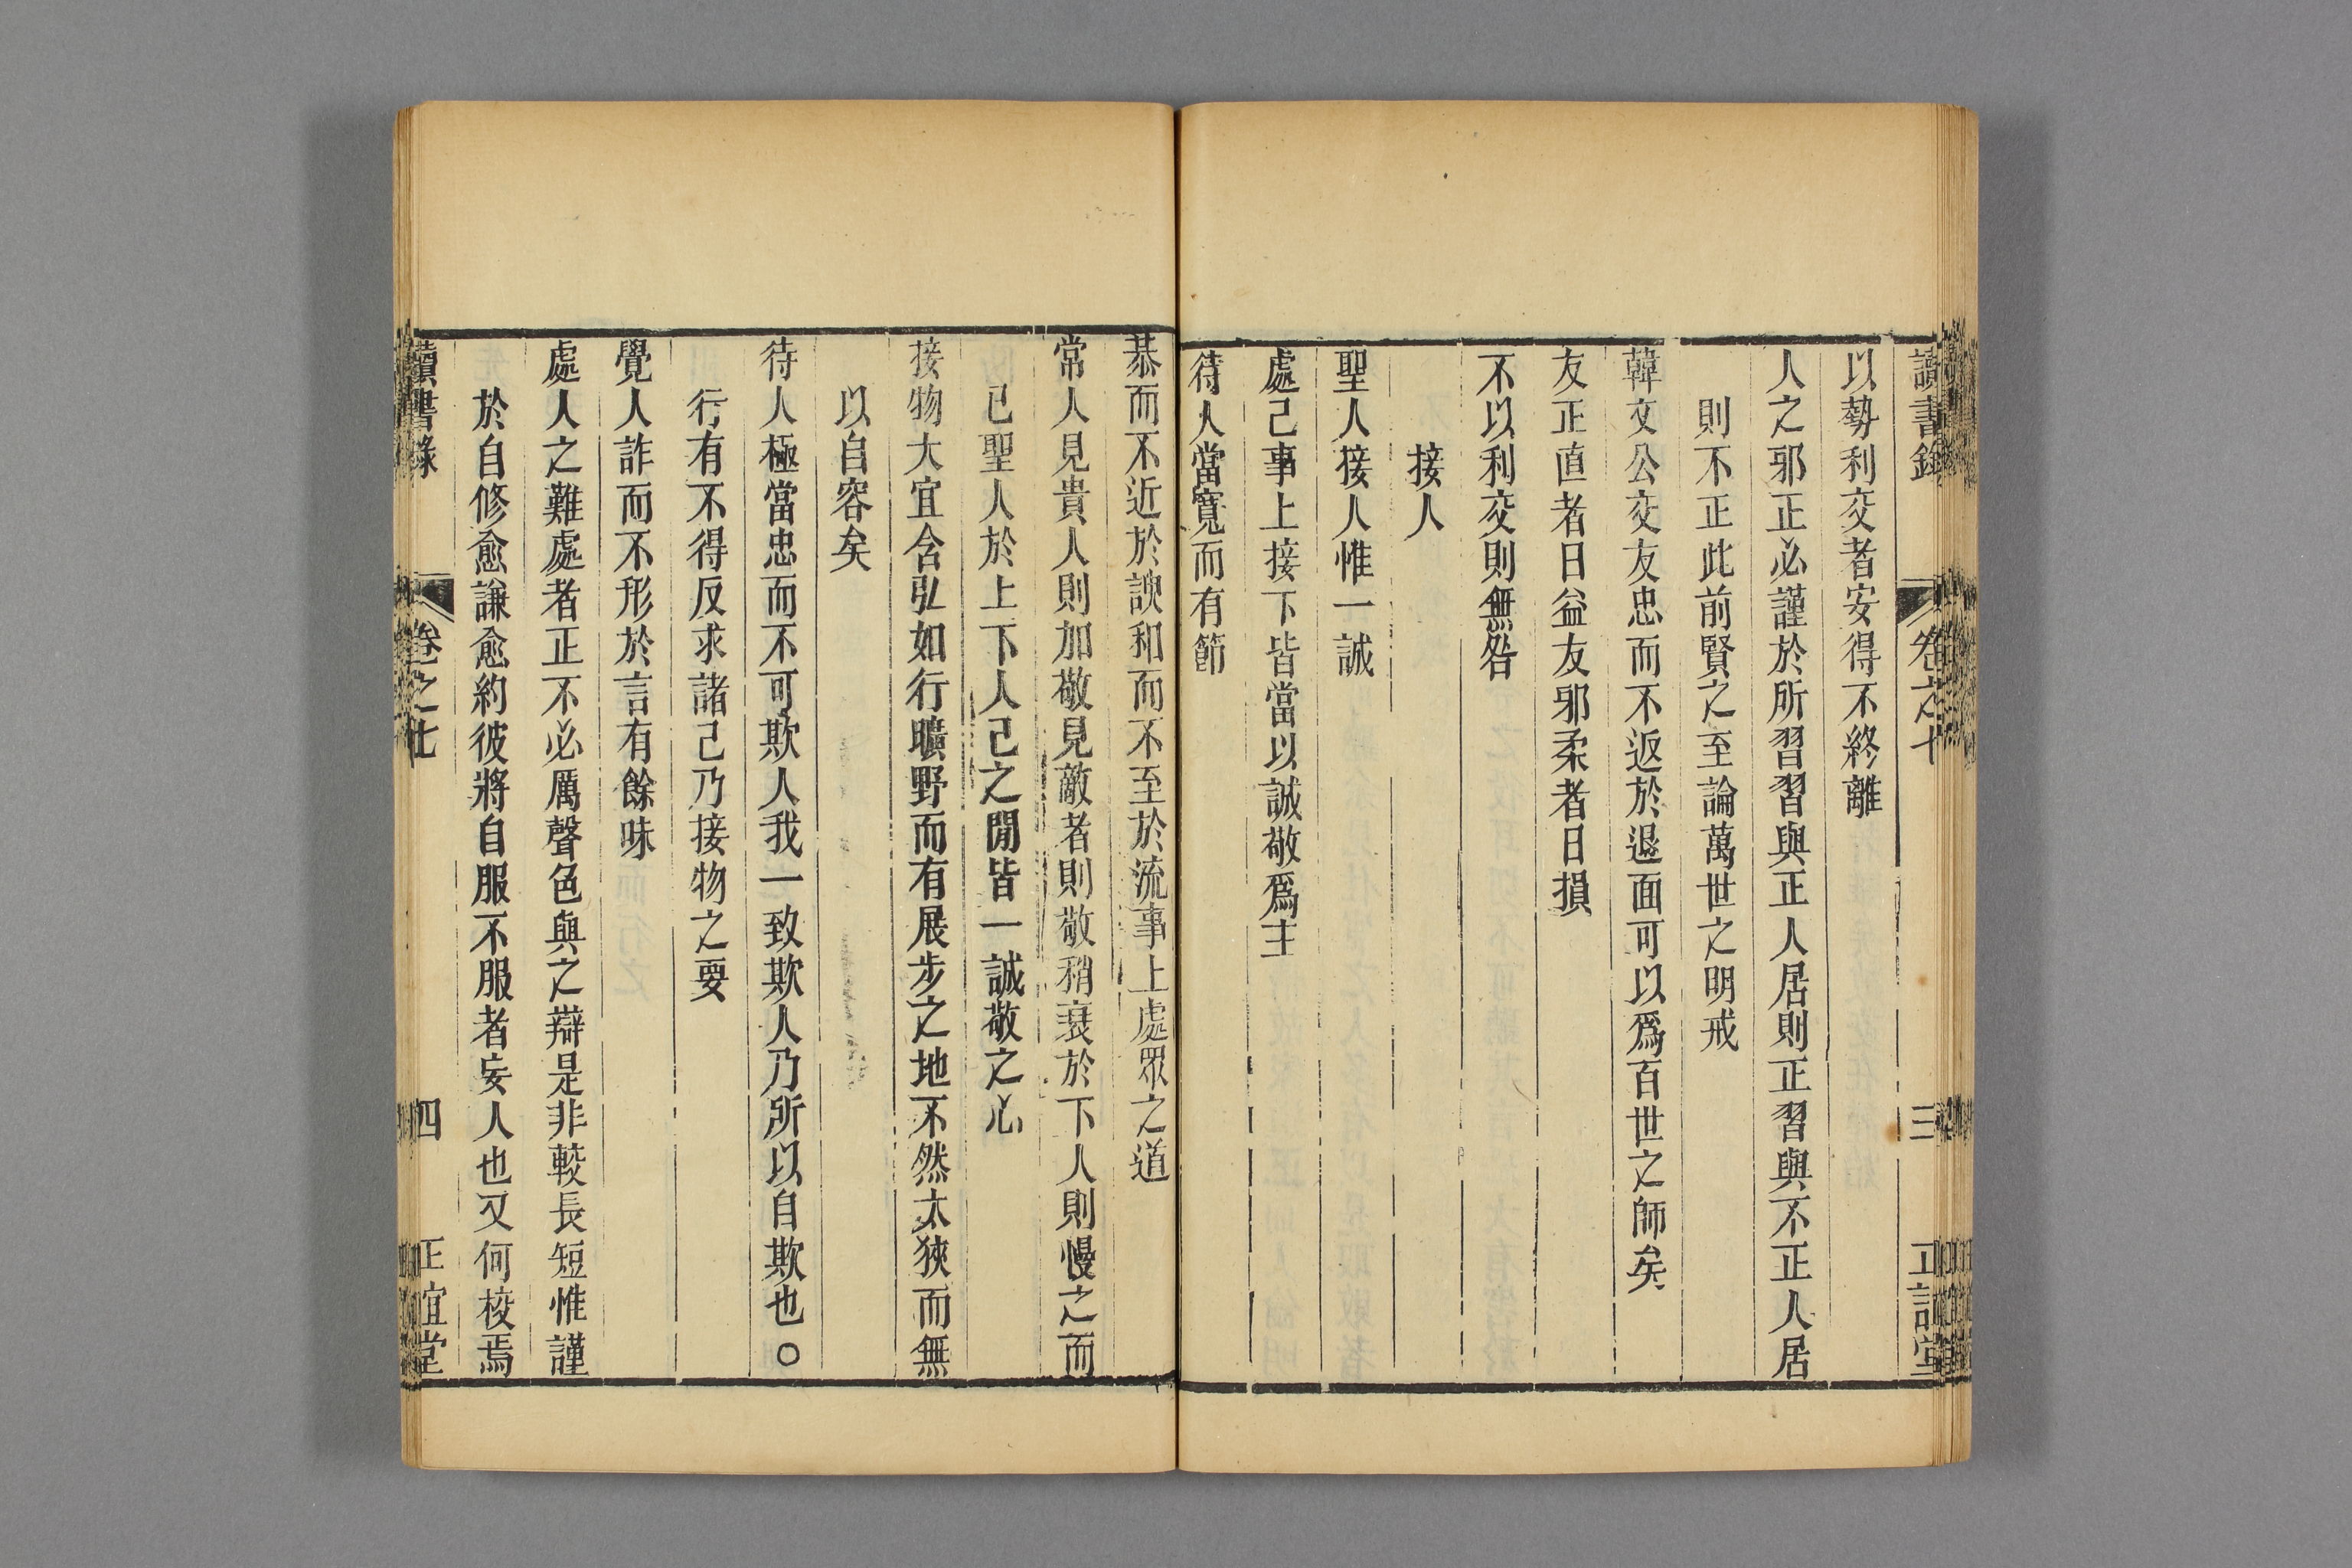 讀書錄 卷之七 三 正誼堂
以勢利交者安得不終離
人之邪正必謹於所習習與正人居則正習與不正人居
則不正此前賢之至論萬世之明戒
韓文公交友忠而不返於退面可以爲百世之師矣
友正直者日益友邪柔者日損
不以利交則無咎
接人
聖人接人惟一誠
處己事上接下皆當以誠敬爲主
待人當寬而有節
恭而不近於諛和而不至於流事上處眾之道
常人見貴人則加敬見敵者則敬稍衰於下人則慢之而
已聖人於上下人己之閒皆一誠敬之心
接物大宜含弘如行曠野而有展步之地不然太狹而無
以自容矣
待人極當忠而不可欺人我一致欺人乃所以自欺也〇
行有不得反求諸己乃接物之要
覺人詐而不形於言有餘味
處人之難處者正不必厲聲色與之辯是非較長短惟謹
於自修愈謙愈約彼將自服不服者妄人也又何校焉
讀書錄 卷之七 四 正誼堂